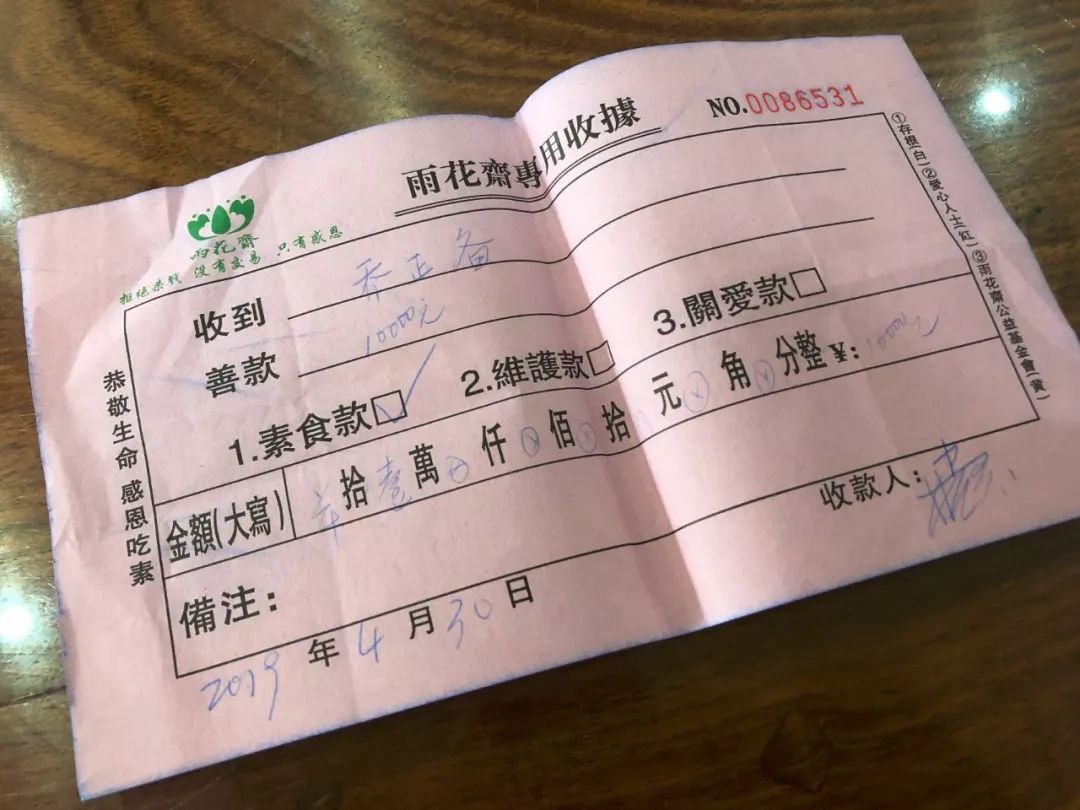 雨花齋專用收據
NO.0086531
雨花齋
拒絕杀戮 没有交易 只有感恩
收到 乔正备
善款 10000元
1.素食款☑ 2.維護款□ 3.關愛款□
金額(大寫) 拾 壹 萬 仟 佰 拾 元 角 分整 ¥: 10000元
備注:
收款人:
2019 年 4 月 30 日
恭敬生命 感恩吃素
①存根(白)②愛心人士(紅)③雨花齋公益基金會(黄)